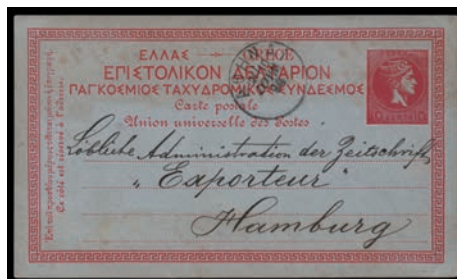 ΕΛΛΑΣ
ΕΠΙΣΤΟΛΙΚΟΝ ΔΕΛΤΑΡΙΟΝ
ΠΑΓΚΟΣΜΙΟΣ ΤΑΧΥΔΡΟΜΙΚΟΣ ΣΥΝΔΕΣΜΟΣ
Carte postale
Union universelle des Postes
Löbliche Administration der Zeitschrift
"Exporteur"
Hamburg
Ce côté est réservé à l'adresse.